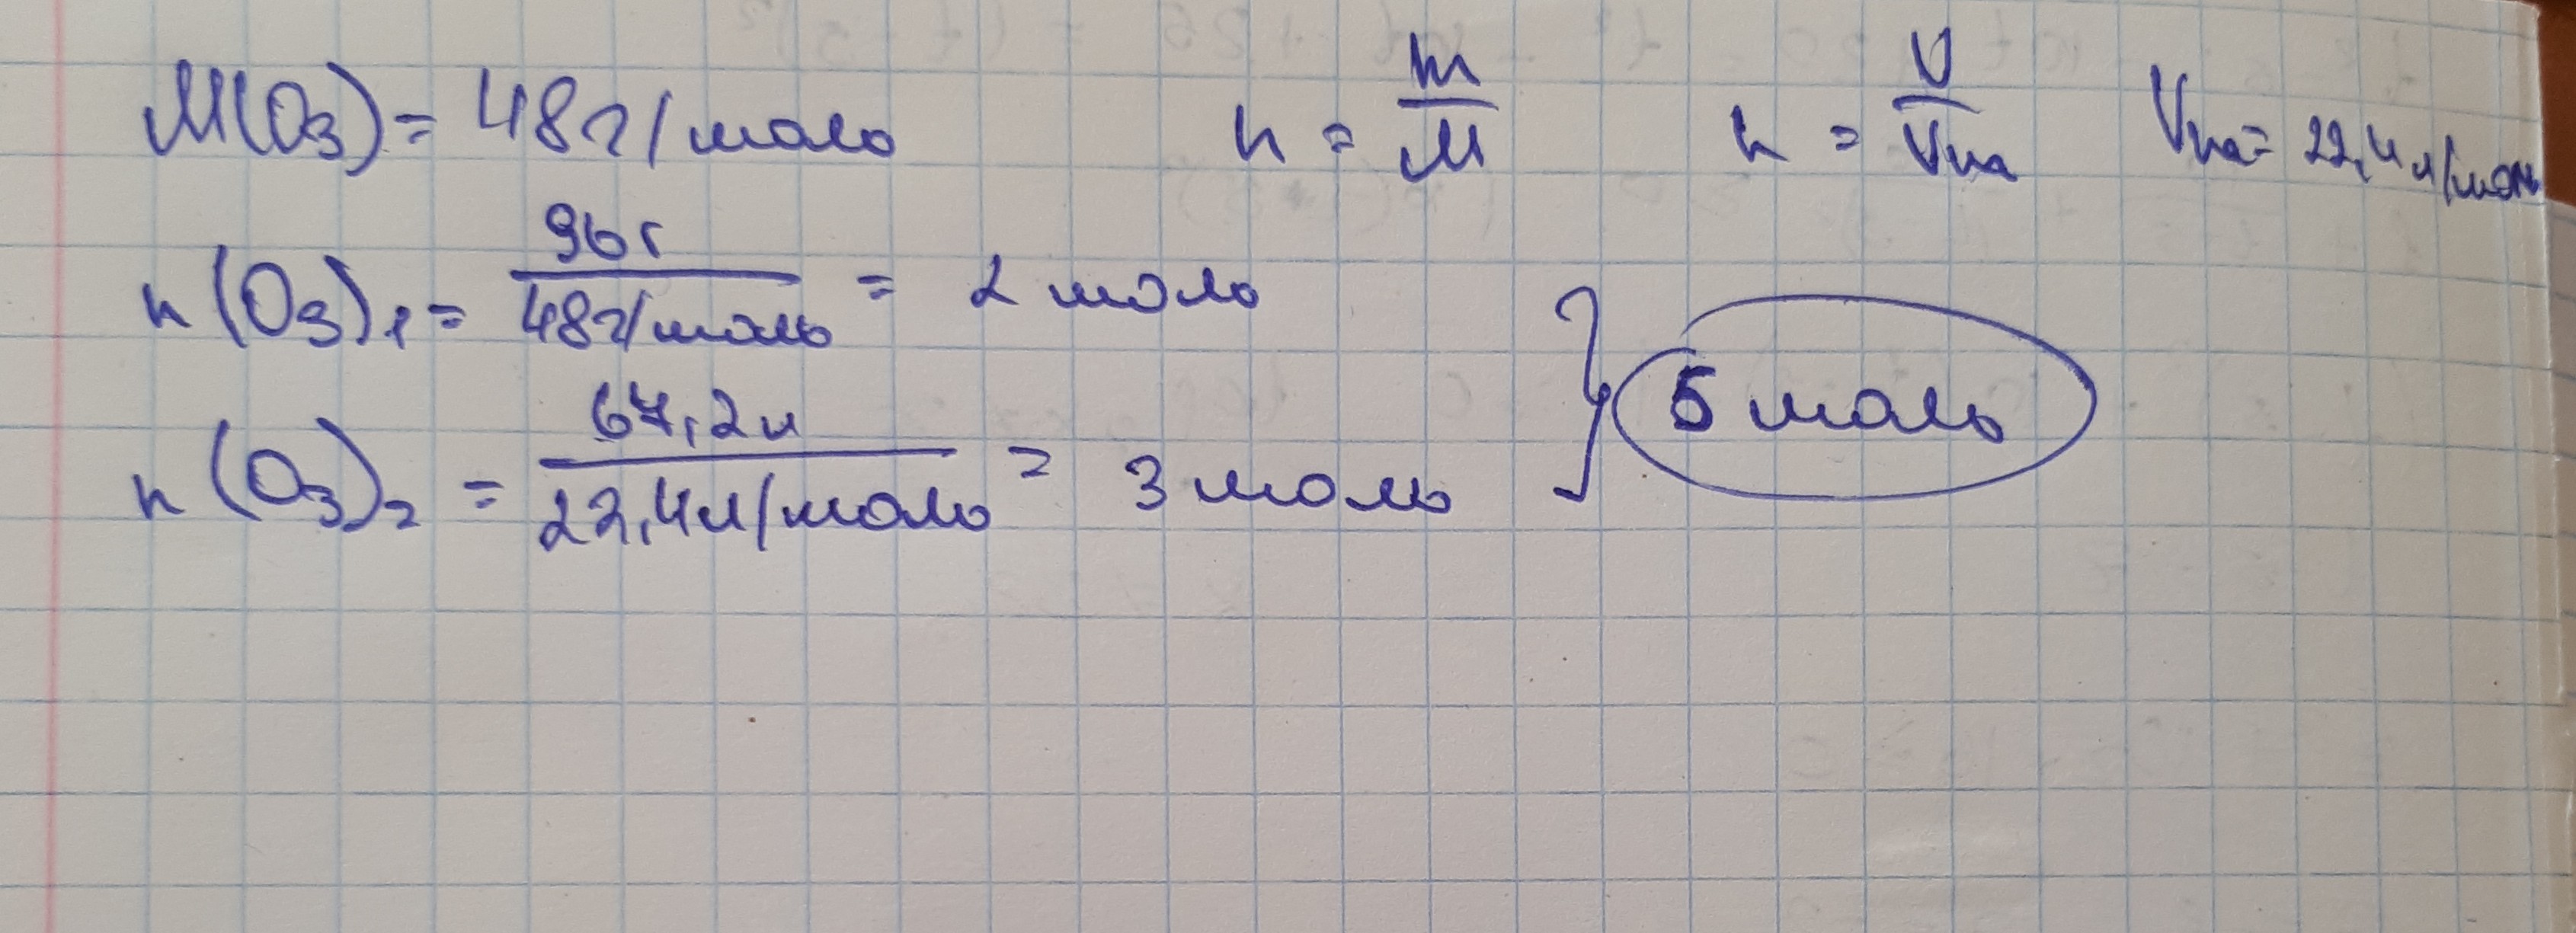 M(O₃) = 48г/моль n = m/M n = V/Vm Vm = 22,4 л/моль
n(O₃)₁ = 96г/48г/моль = 2 моль
n(O₃)₂ = 67,2л/22,4л/моль = 3 моль } 5 моль